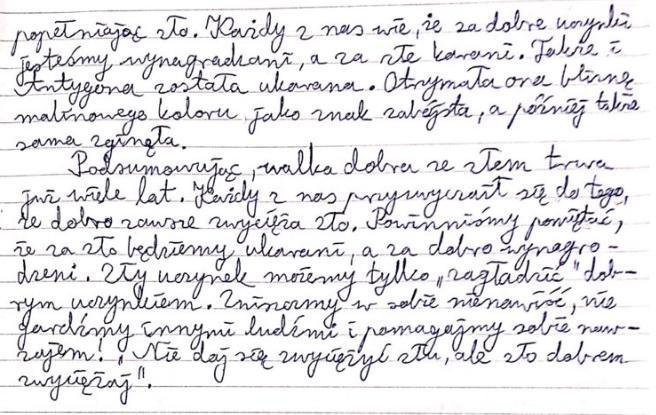 popełniając zło. Każdy z nas wie, że za dobre uczynki
jesteśmy wynagradzani, a za złe karani. Także i
Antygona została ukarana. Otrzymała ona bliznę
malinowego koloru jako znak zabójstwa, a później także
sama zginęła.
Podsumowując, walka dobra ze złem trwa
już wiele lat. Każdy z nas przyzwyczaił się do tego,
że dobro zawsze zwycięża zło. Powinniśmy pamiętać,
że za zło będziemy ukarani, a za dobro wynagro-
dzeni. Zły uczynek możemy tylko „zagładzić" dob-
rym uczynkiem. Zniszczmy w sobie nienawiść, nie
gardźmy innymi ludźmi i pomagajmy sobie naw-
zajem! „Nie daj się zwyciężyć złu, ale zło dobrem
zwyciężaj".